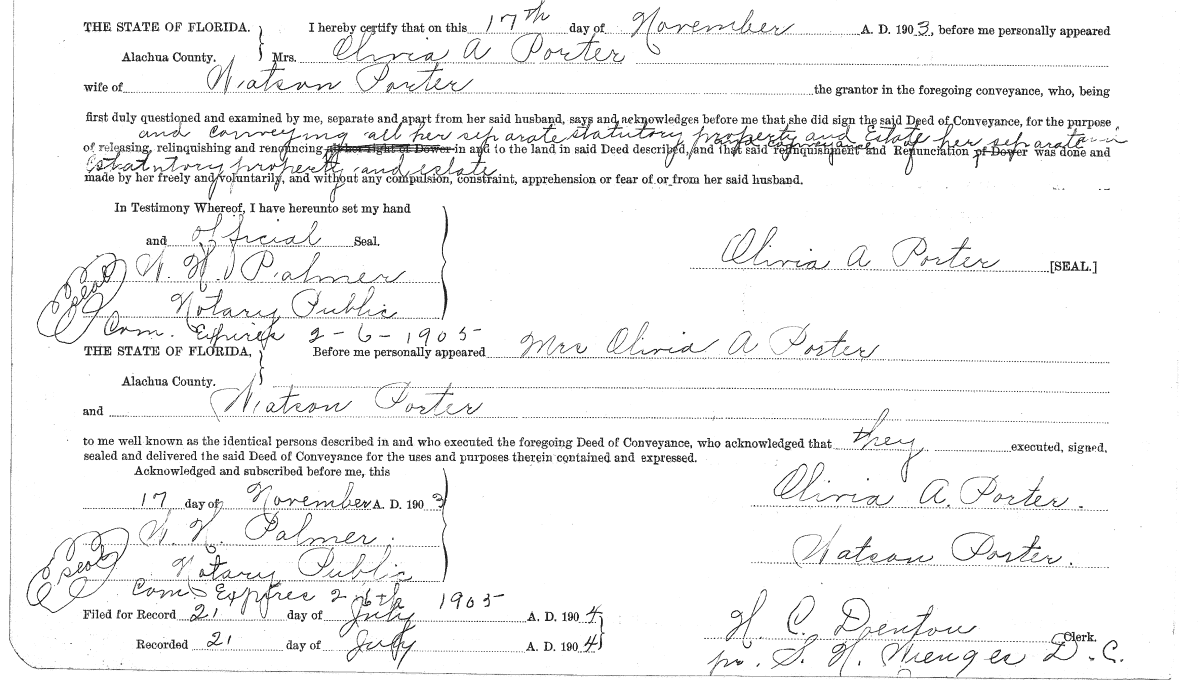 THE STATE OF FLORIDA. I hereby certify that on this 17th day of November A. D. 1903, before me personally appeared
Alachua County. Mrs. Olivia A Porter
wife of Watson Porter the grantor in the foregoing conveyance, who, being
first duly questioned and examined by me, separate and apart from her said husband, says and acknowledges before me that she did sign the said Deed of Conveyance, for the purpose
and conveying all her separate statutory property and Estate conveyance of her separate
of releasing, relinquishing and renouncing all her right of Dower in and to the land in said Deed described, and that said relinquishment and Renunciation of Dower was done and
statutory property and estate
made by her freely and voluntarily, and without any compulsion, constraint, apprehension or fear of or from her said husband.
In Testimony Whereof, I have hereunto set my hand
and official Seal.
Olivia A Porter [SEAL.]
Seal W. H. Palmer
Notary Public
Com. Expires 2-6-1905
THE STATE OF FLORIDA, Before me personally appeared Mrs Olivia A Porter
Alachua County.
and Watson Porter
to me well known as the identical persons described in and who executed the foregoing Deed of Conveyance, who acknowledged that they executed, signed,
sealed and delivered the said Deed of Conveyance for the uses and purposes therein contained and expressed.
Acknowledged and subscribed before me, this
17 day of November A. D. 1903
Olivia A. Porter.
W. H. Palmer.
Seal Notary Public
Watson Porter.
Com. Expires 2-6th 1905
Filed for Record 21 day of July A. D. 1904
H. C. Denton Clerk.
Recorded 21 day of July A. D. 1904
pr. S. H. Wienges D.C.